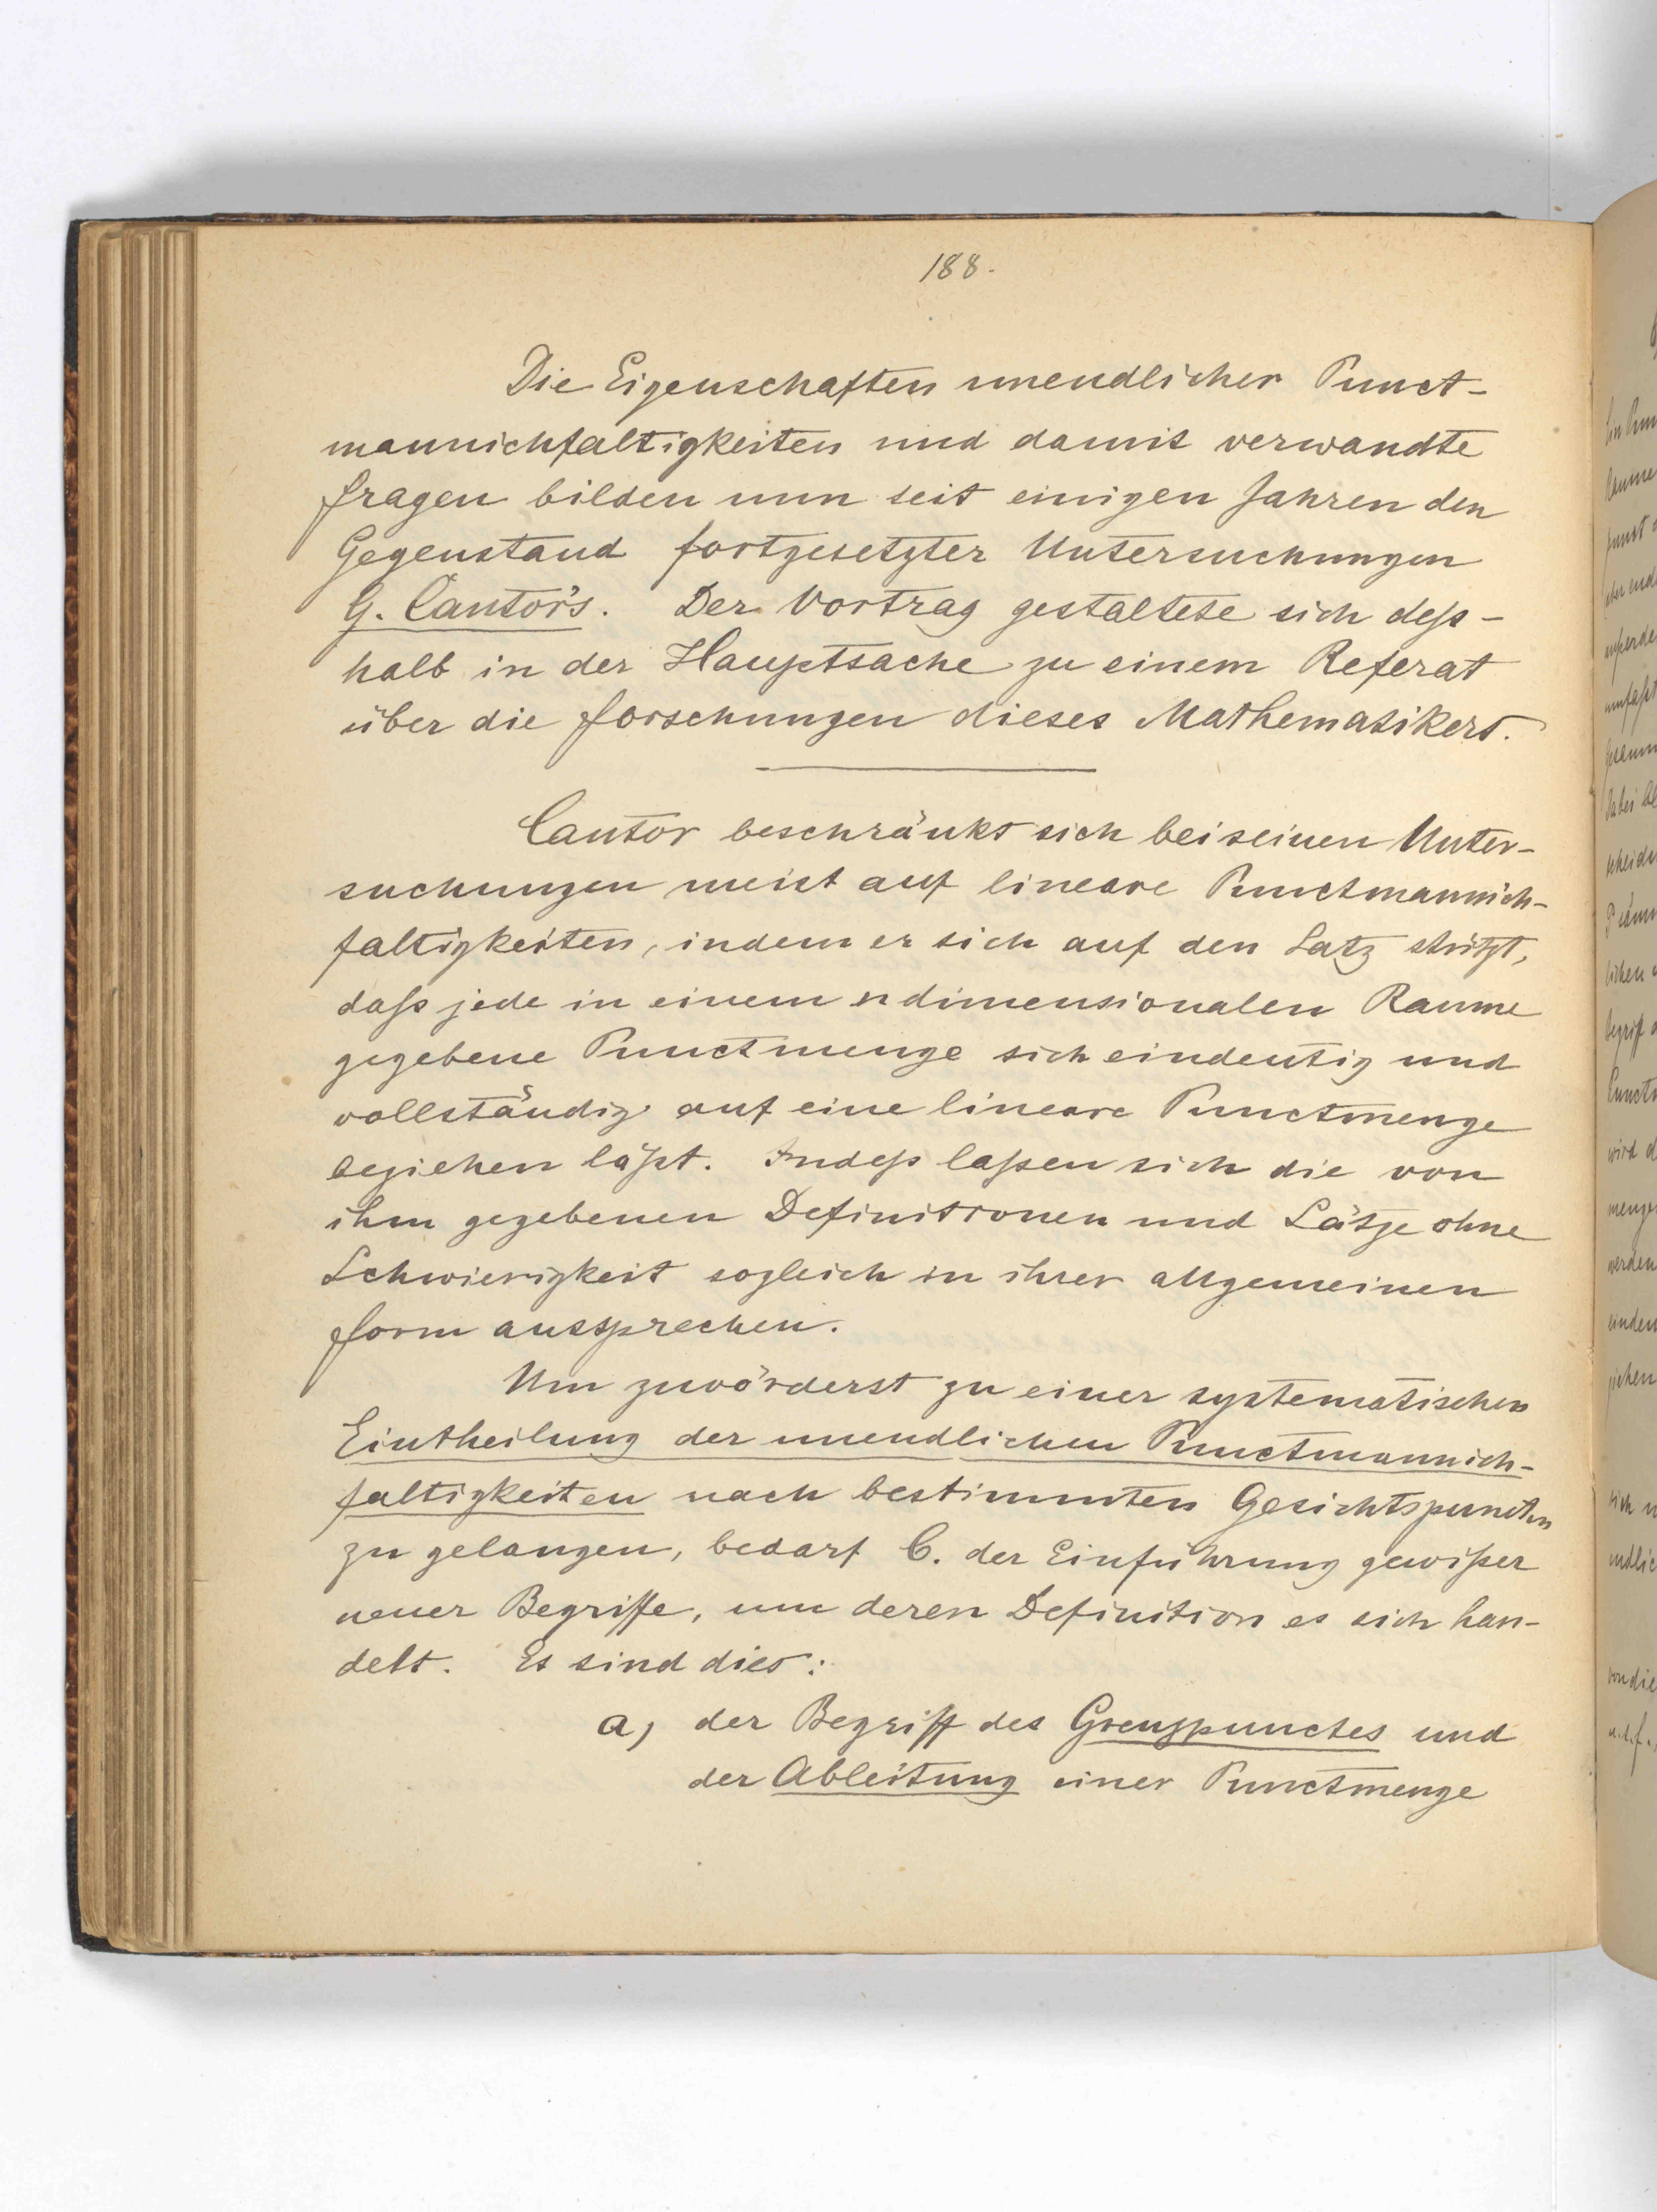 188.
Die Eigenschaften unendlicher Punct-
mannichfaltigkeiten und damit verwandte
Fragen bilden nun seit einigen Jahren den
Gegenstand fortgesetzter Untersuchungen
G. Cantor's. Der Vortrag gestaltete sich deß-
halb in der Hauptsache zu einem Referat
über die Forschungen dieses Mathematikers.
Cantor beschränkt sich bei seinen Unter-
suchungen meist auf lineare Punctmannich-
faltigkeiten, indem er sich auf den Satz stützt,
daß jede in einem n dimensionalen Raume
gegebene Punctmenge sich eindeutig und
vollständig auf eine lineare Punctmenge
beziehen läßt. Indeß laßen sich die von
ihm gegebenen Definitionen und Sätze ohne
Schwierigkeit sogleich in ihrer allgemeinen
Form aussprechen.
Um zuvörderst zu einer systematischen
Eintheilung der unendlichen Punctmannich-
faltigkeiten nach bestimmten Gesichtspuncten
zu gelangen, bedarf C. der Einführung gewißer
neuer Begriffe, um deren Definition es sich han-
delt. Es sind dies:
a) der Begriff des Grenzpunctes und
der Ableitung einer Punctmenge